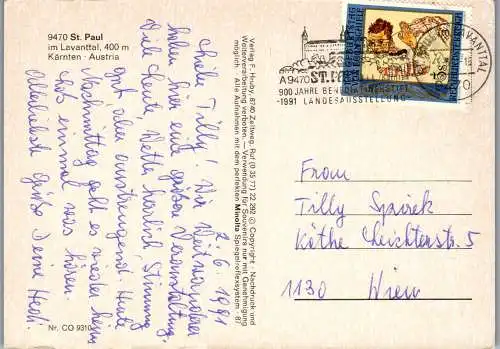 9470 St. Paul
im Lavanttal, 400 m
Kärnten · Austria
2.6.1991
Liebe Tilly! Die Weitwanderer
haben hier eine große Veranstaltung.
Viele Leute, Wetter herrlich, Stimmung
gut aber anstrengend. Heute
Nachmittag geht es wieder heim
Laß einmal was hören.
Allerliebste Grüße Deine Hedi
Nr. CO 9310
Verlag F. Hruby, 8740 Zeltweg, Ruf (0 35 77) 22 292 © Copyright · Nachdruck und
Weiterverarbeitung verboten. — Verwendung für Souvenirs nur mit Genehmigung
möglich. · Alle Aufnahmen mit dem perfekten Minolta Spiegelreflexsystem · 87
A9470 ST.
900 JAHRE
-1991 LANDESAUSSTELLUNG-
LAVANTTAL
Frau
Tilly
Käthe Leichterstr. 5
1130 Wien